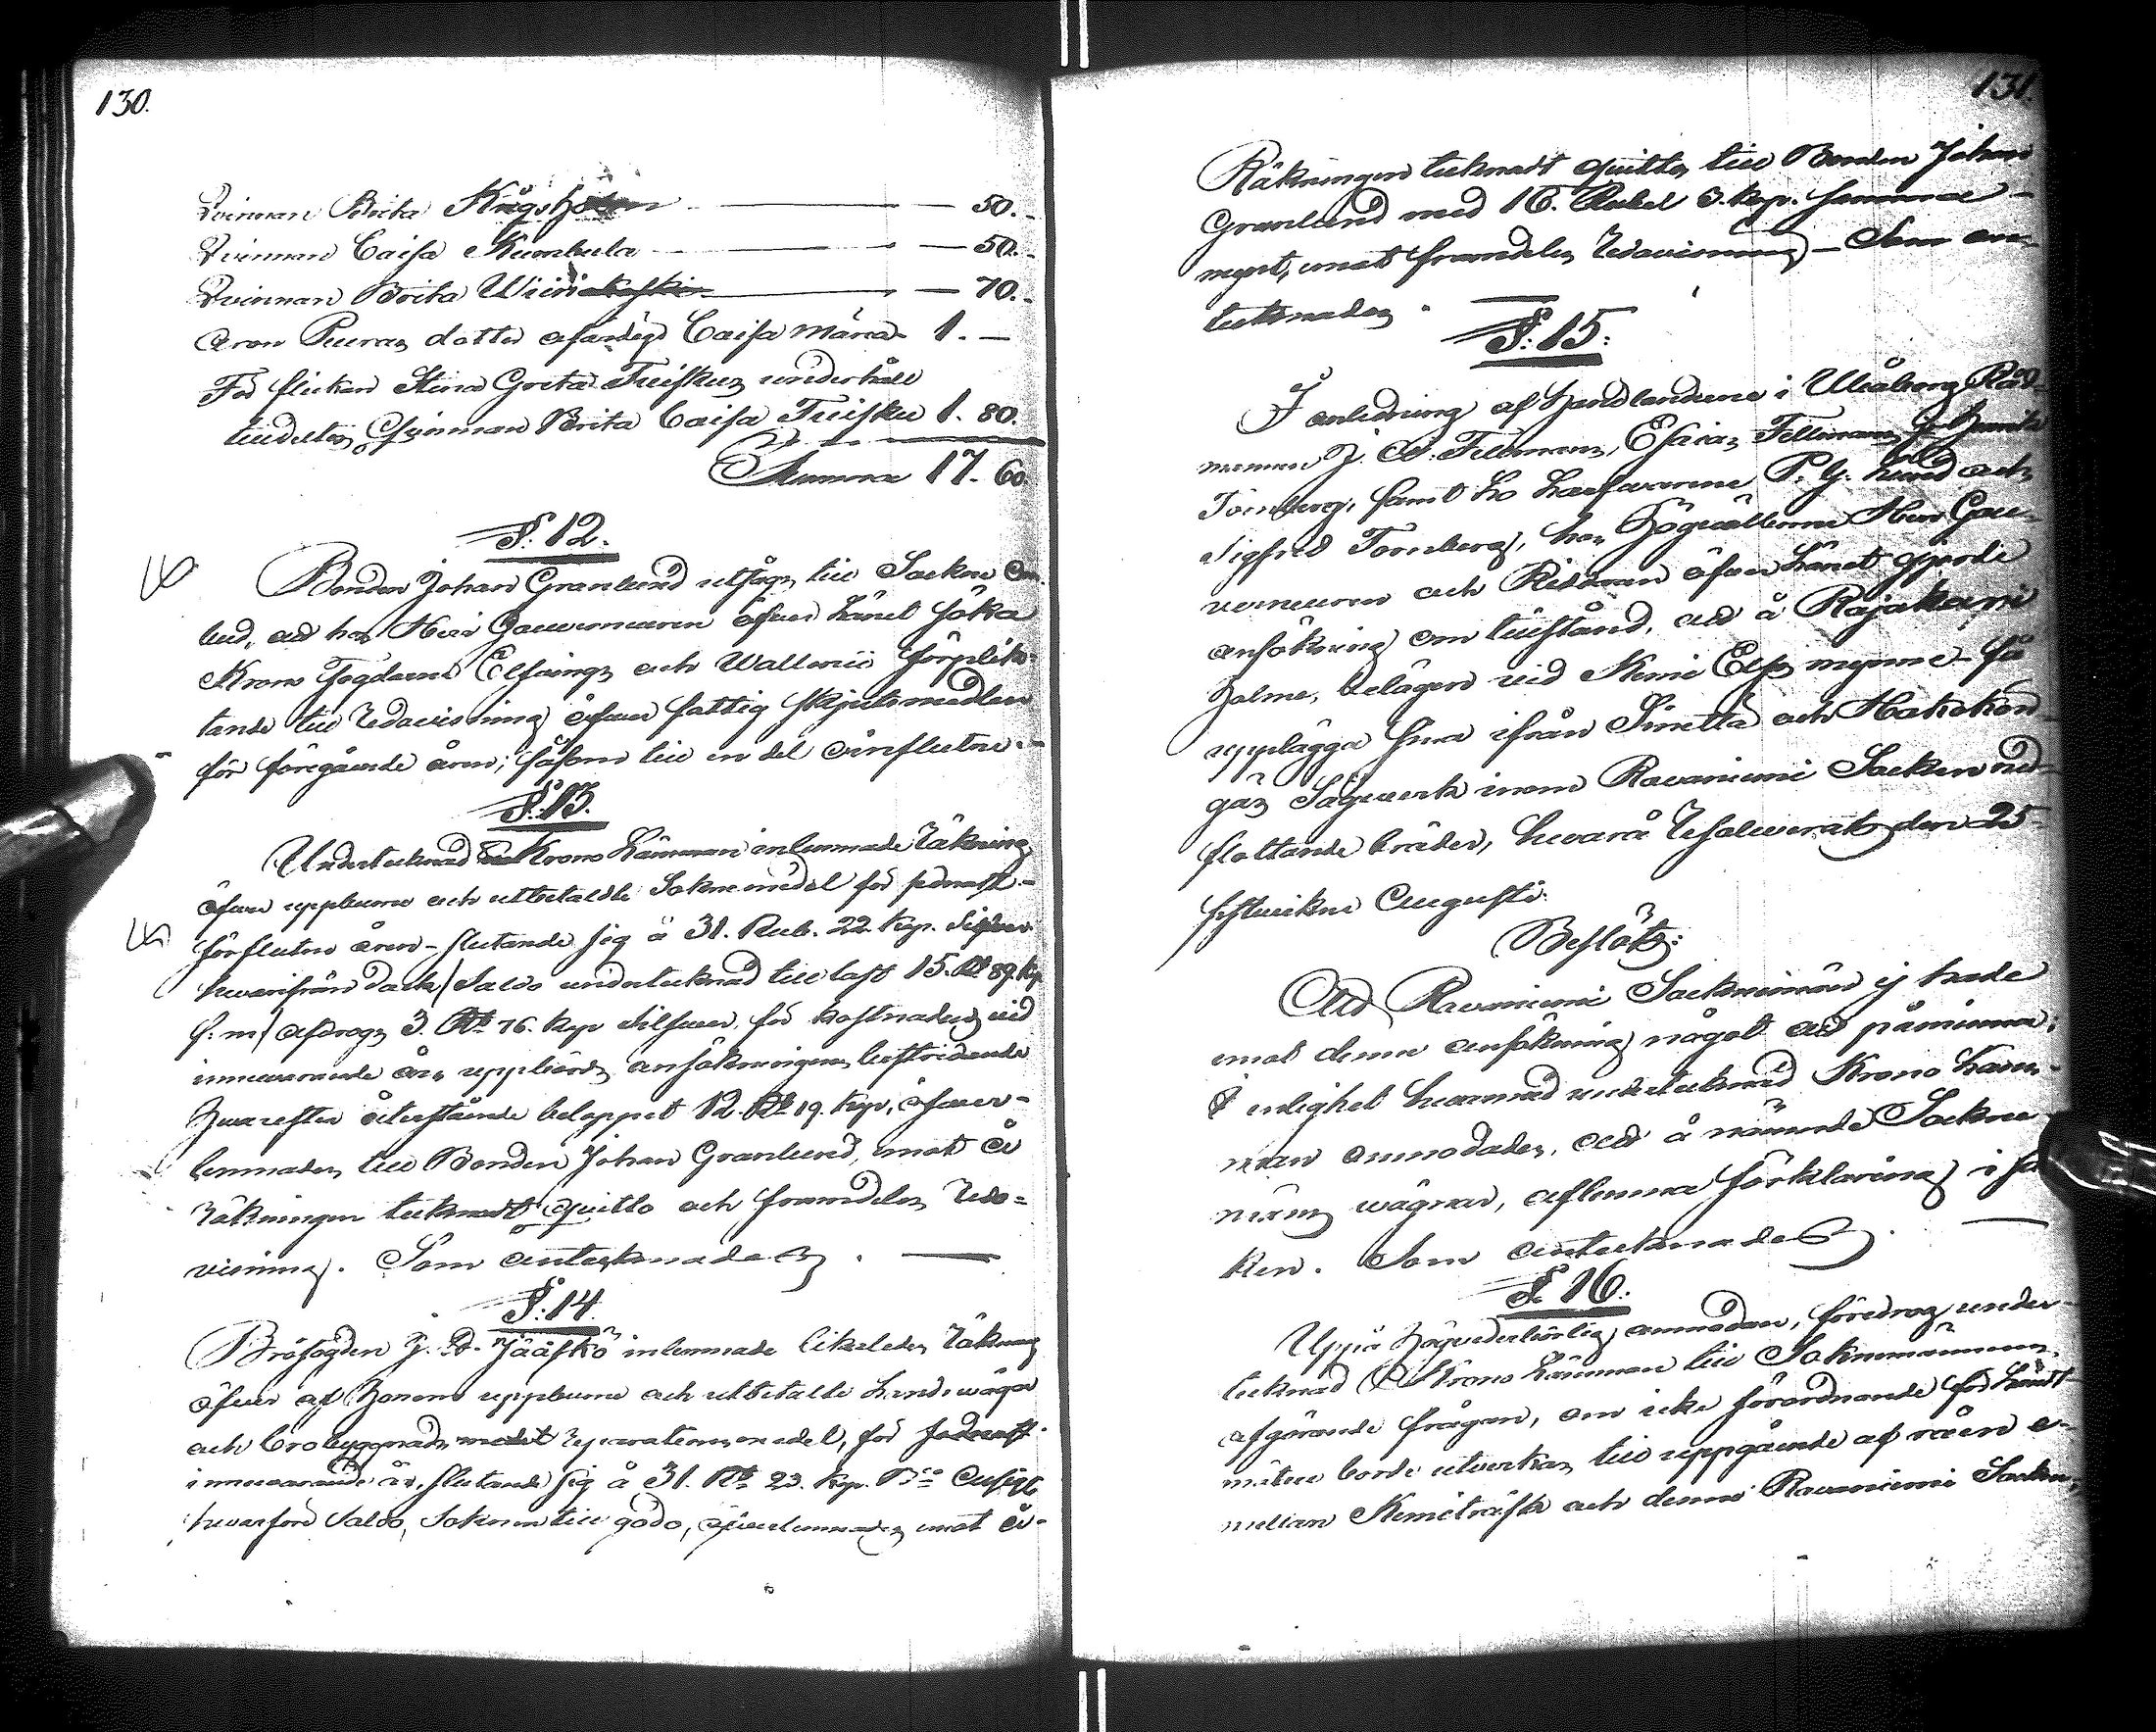 130.
Qvinnan Brita Kågsholm 50.
Qvinnan Caisa Kumbula 50.
Qvinnan Brita Wiinikaski 70.
Aron Puuras dotter afsides Caisa Maria 1. —
För flickan Stina Greta Tuiskus underhåll
tilldeltes Qvinnan Brita Caisa Tuisku 1. 80.
Summa 17. 60.
§: 12.
Bonden Johan Granlund utsågs till Sockne Om-
bud, att hos Herr Gouverneuren öfver Länet söka
Krono Fogdarne Elfvings och Wallenii förplik-
tande till redovisning öfver fattig skjutsmedlen
för föregående åren; såsom till en del oinflutne.
§: 13.
Undertecknad Krono Länsman inlemnade Räkning
öfver uppburne och utbetalde Sokne medel för sednast-
förflutne åren - slutande sig å 31. Rub. 22. kop. Silfver
hwarifrån dock / Saldo undertecknad till last 15. Rb 89. kop
s: m / afdrogs 3. Rb 76. kop Silfver, för kostnaden vid
innewarande års uppbörds ansökningens bestridande
Hwarefter återstående beloppet 12. Rb 19. kop, öfver-
lemnades till Bonden Johan Granlund, emot å
Räkningen tecknadt qvitto och framdeles redo-
visning. Som antecknades.
§: 14.
Brofogden J. Jääskö inlemnade likaledes Räkning
öfver af Honom uppburne och utbetalte Landswäga
och brobyggnads reparations medel, för sednast
innewarande år, slutande sig å 31. Rb 23. kop. Bco Assig:
hwarför Saldo, Soknen till godo, öfverlemnades emot å
131.
Räkningen tecknadt qvitto, till Bonden Johan
Granlund med 16. Rubel 3. kop. samma
mynt, emot framdeles redovisning - Som an-
tecknades.
§: 15.
I anledning af Handlandene i Uleåborg Råd-
mannen J. W. Fellman, Esaias Fellman, Henrik
Tornberg, samt Lo Lasswarne P. G. Lund och
Sigfrid Tornberg, hos Högwälborne Herr Gou-
verneuren och Riddaren öfver Länet gjorde
ansökning om tillstånd, att å Rajakari
holme, belägen vid Kemi Elfs mynne - få
upplägga sina ifrån Sinettä och Hakokön-
gäs Sågwerk inom Rovaniemi Socken ned-
flottande bräder, hwarå resolverats den 25
sistwikne Augusti.
Beslöts:
Att Rovaniemi Socknemän ej hade
emot denne ansökning något att påminna;
I enlighet hwarmed undertecknad Krono Läns-
man anmodades, att å nämnde Sockne
mäns wägnar, aflemna förklaring i sa-
ken. Som antecknades.
§: 16.
Uppå Högwederbörlig anmodan, föredrog under-
tecknad Krono Länsman till Soknemännens
afgörande frågan, om icke förordnande för Landt-
mätare borde utwerkas till uppgående af råen e-
mellan Kemiträsk och denne Rovaniemi Socken,